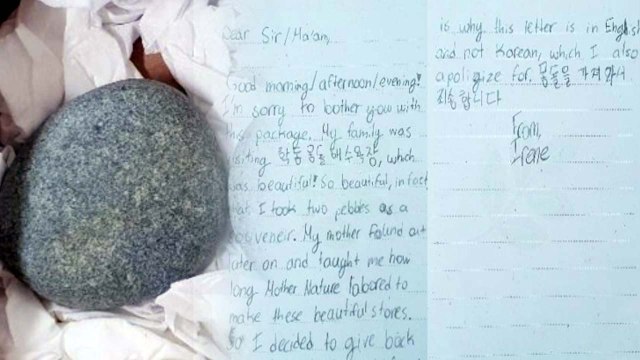 Dear Sir/Ma'am,
Good morning/afternoon/evening!
I'm sorry to bother you with
this package. My family was
visiting 학동몽돌해수욕장, which
was beautiful! So beautiful, in fact
that I took two pebbles as a
souvenir. My mother found out
later on and taught me how
long Mother Nature labored to
make these beautiful stones.
So I decided to give back
is why this letter is in English
and not Korean, which I also
apoligize for. 몽돌을 가져와서
죄송합니다
From,
Irene